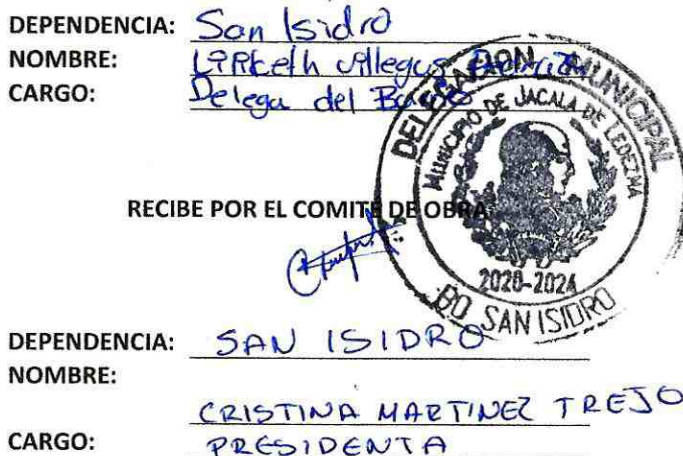 DEPENDENCIA: San Isidro
NOMBRE: Villegas
CARGO: Delega del Barrio
DELEGACION MUNICIPAL
MUNICIPIO DE JACALA DE LEDEZMA
2020-2024
BO SAN ISIDRO
RECIBE POR EL COMITE DE OBRA
DEPENDENCIA: SAN ISIDRO
NOMBRE:
CRISTINA MARTINEZ TREJO
CARGO: PRESIDENTA